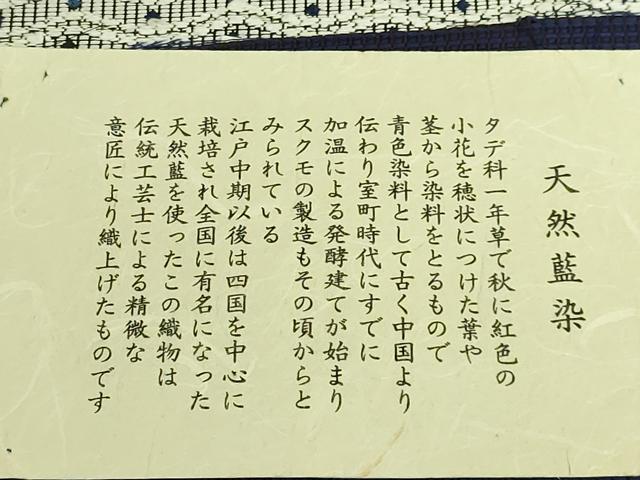 天然藍染
タデ科一年草で秋に紅色の
小花を穂状につけた葉や
茎から染料をとるもので
青色染料として古く中国より
伝わり室町時代にすでに
加温による発酵建てが始まり
スクモの製造もその頃からと
みられている
江戸中期以後は四国を中心に
栽培され全国に有名になった
天然藍を使ったこの織物は
伝統工芸士による精微な
意匠により織上げたものです